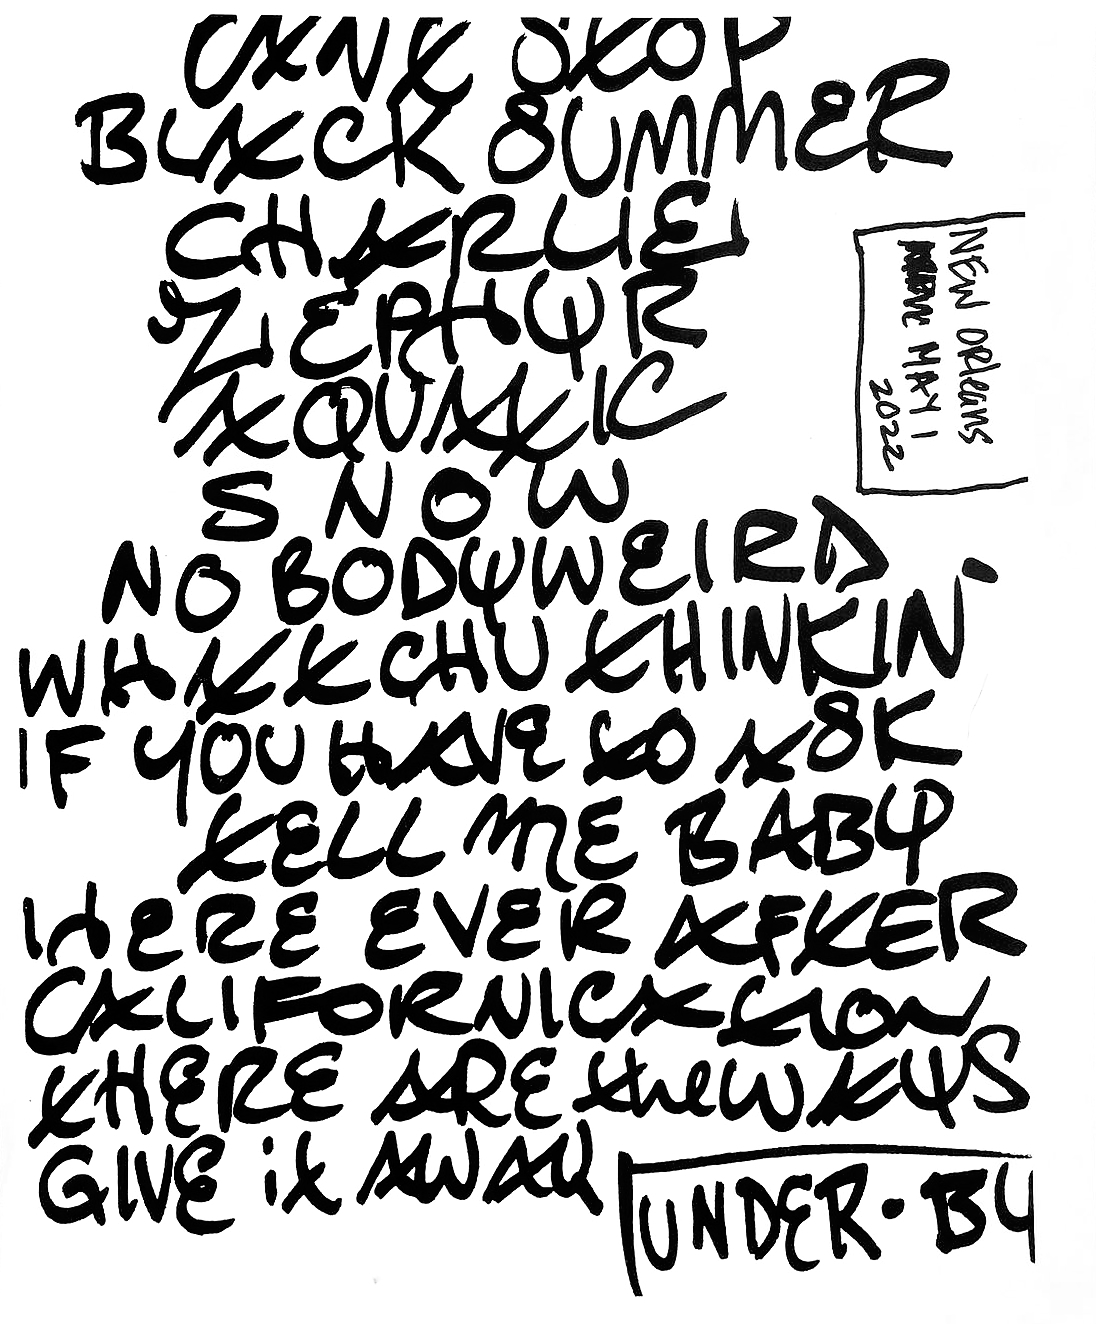 CANT STOP
BLACK SUMMER
CHARLIE
ZEPHYR
AQUATIC
SNOW
NOBODY WEIRD
WHATCHU THINKIN'
IF YOU HAVE TO ASK
TELL ME BABY
HERE EVER AFTER
CALIFORNICATION
THERE ARE the WAYS
GIVE it AWAY
UNDER · BU
NEW ORleans
MAY 1
2022